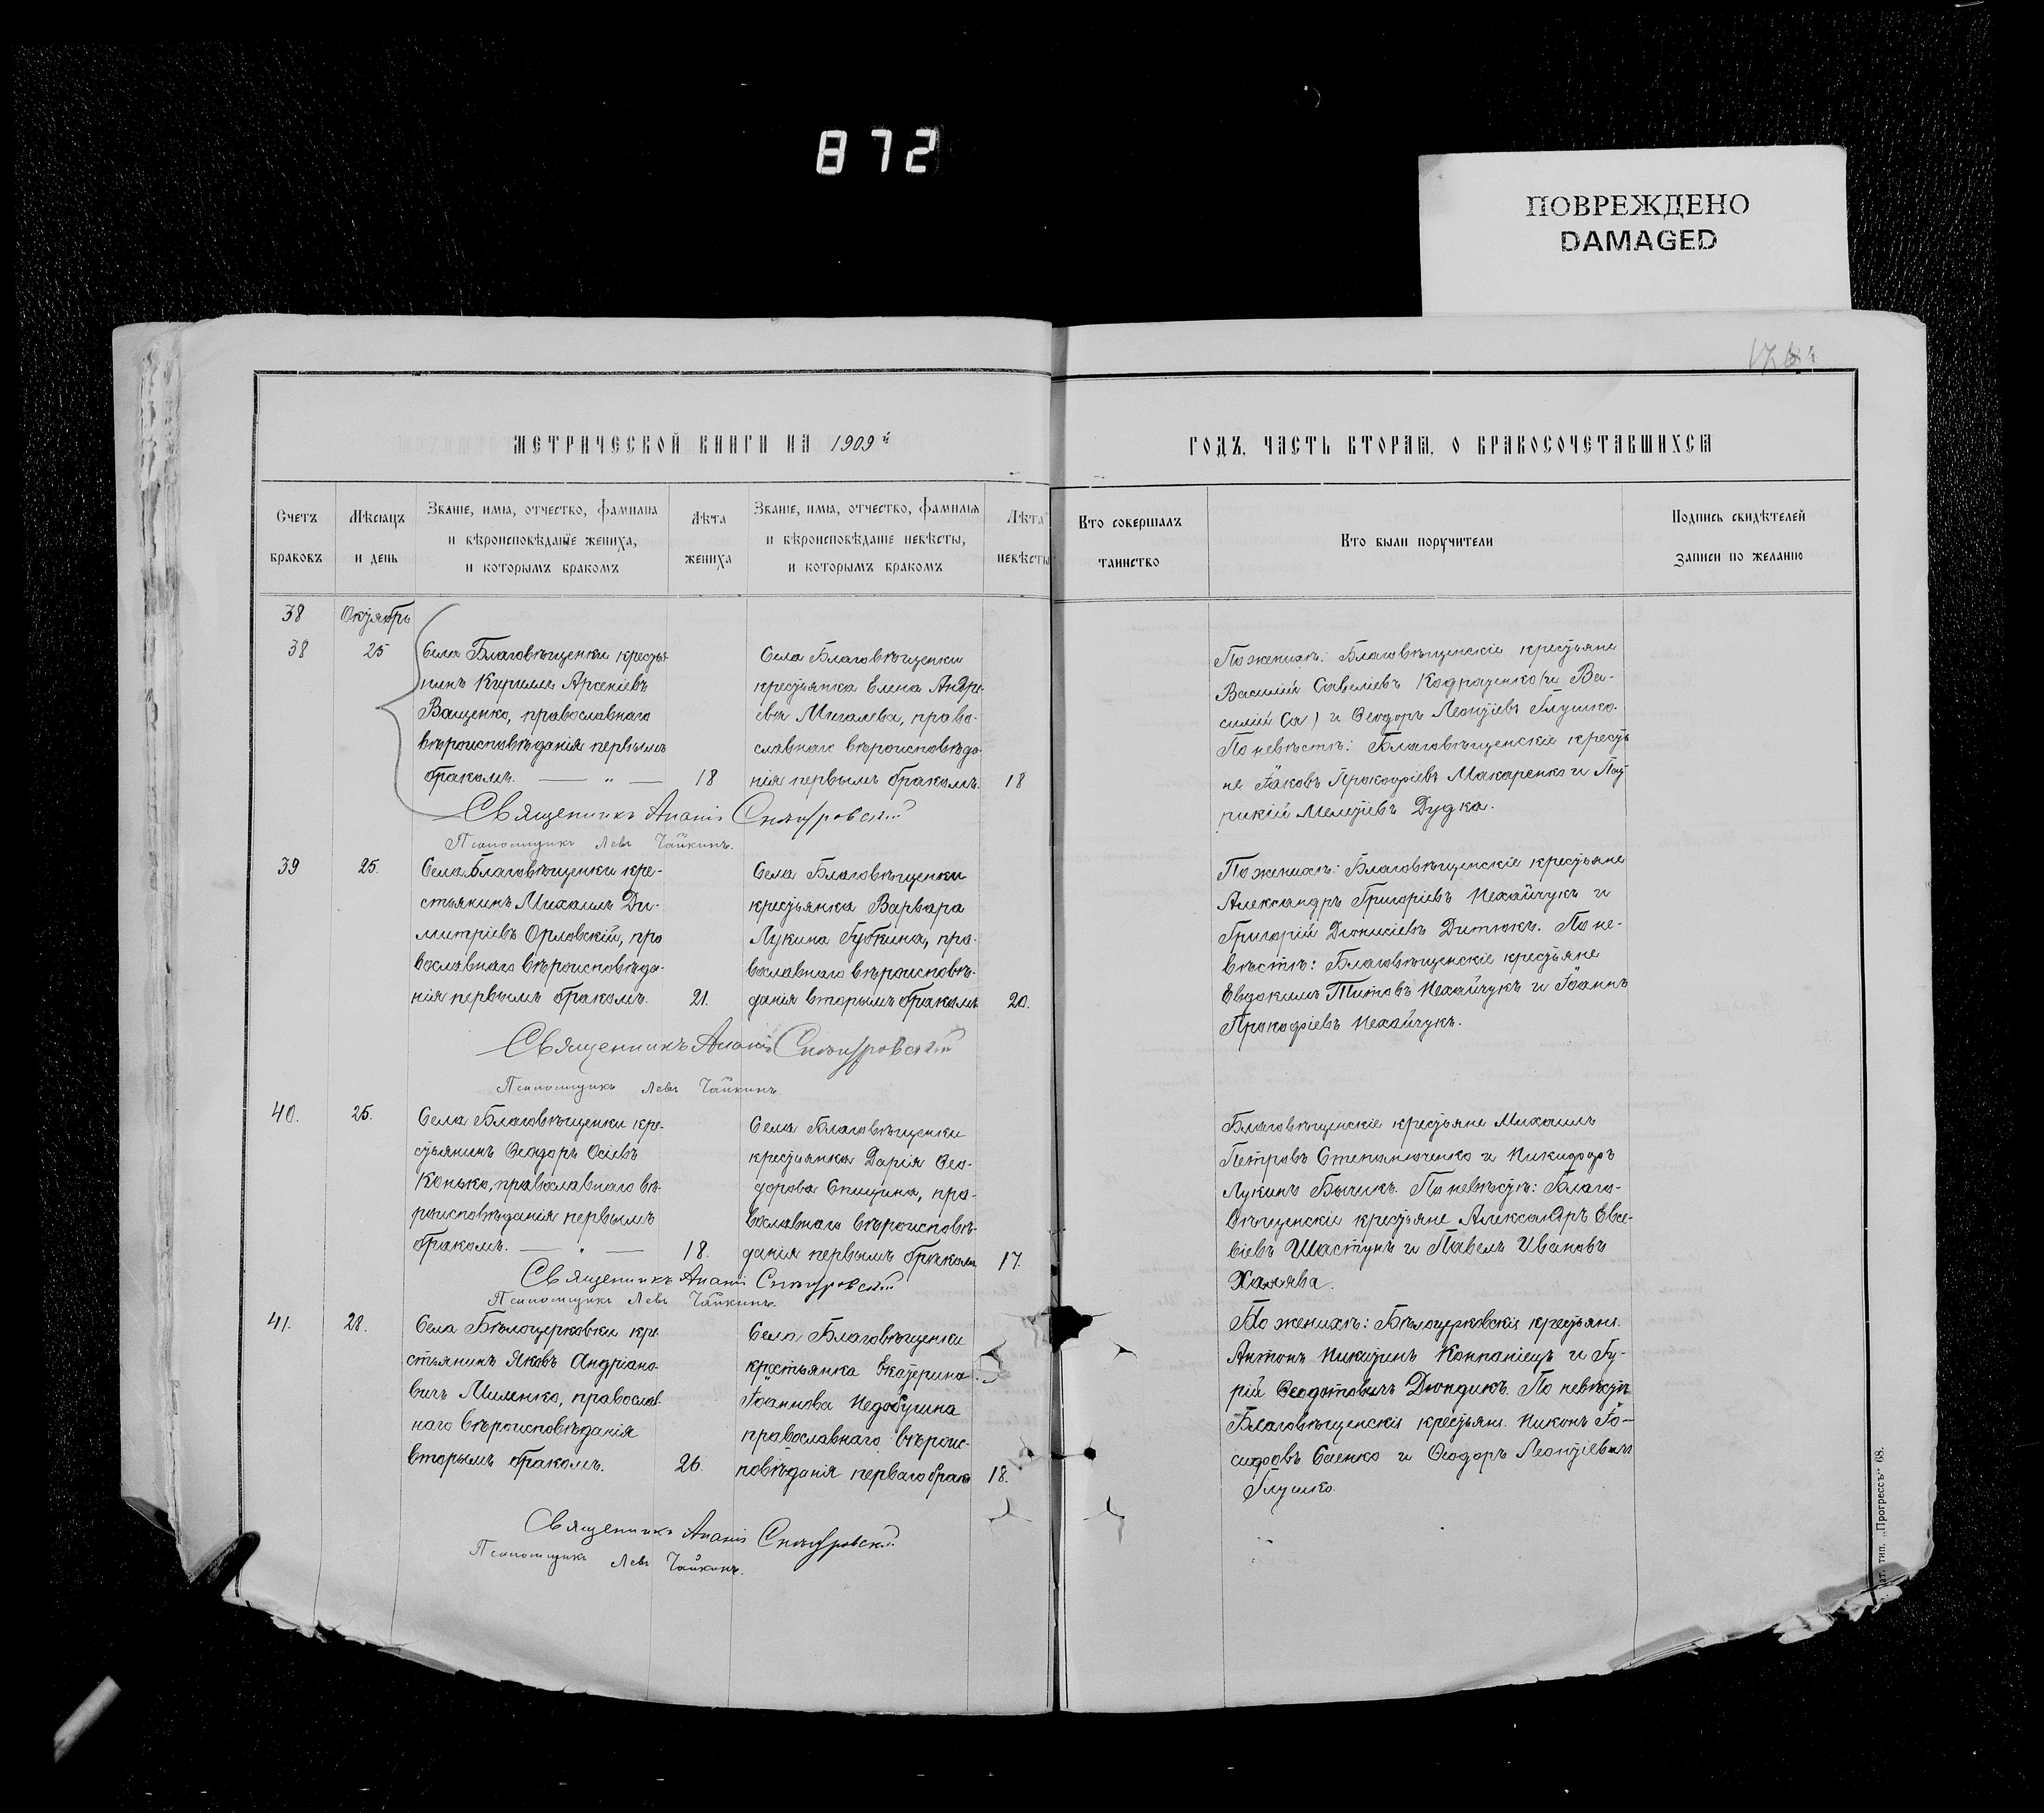 872
ПОВРЕЖДЕНО
DAMAGED
МЕТРИЧЕСКОЙ КНИГИ НА 1909й
ГОДЪ, ЧАСТЬ ВТОРАЯ, О БРАКОСОЧЕТАВШИХСЯ
Счетъ браковъ
Мѣсяцъ и день
Званіе, имя, отчество, фамилія и вѣроисповѣданіе жениха, и которымъ бракомъ
Лѣта жениха
Званіе, имя, отчество, фамилія и вѣроисповѣданіе невѣсты, и которымъ бракомъ
Лѣта невѣсты
Кто совершалъ таинство
Кто были поручители
Подпись свидѣтелей записи по желанію
38 Октябрь
38 25
Села Благовѣщенки кресть
нинъ Кириллъ Арсеніевъ
Ващенко, православнаго
вѣроисповѣданія первымъ
бракомъ. — „ — 18
Села Благовѣщенки
крестьянка Елена Андре-
ева Мигалева, право-
славнаго вѣроисповѣда-
нія первымъ бракомъ. 18
По женихѣ: Благовѣщенскіе крестьяне
Василій Савеліевъ Кодраценко (и Ва-
силій Са) и Ѳеодоръ Леонтіевъ Глушко.
По невѣстѣ: Благовѣщенскіе крестья
не Іаковъ Прокофіевъ Макаренко и Пат
рикій Мелетіевъ Дудка.
Священникъ Ананій
Псаломщикъ Левъ Чайкинъ.
39 25.
Села Благовѣщенки кре-
стьянинъ Михаилъ Ди-
митріевъ Орловскій, пра
вославнаго вѣроисповѣда-
нія первымъ бракомъ. 21.
Села Благовѣщенки
крестьянка Варвара
Лукина Губкина, пра-
вославнаго вѣроисповѣ-
данія вторымъ бракомъ 20.
По женихѣ: Благовѣщенскіе крестьяне
Александръ Григоріевъ Нехайчукъ и
Григорій Діонисіевъ Дитюкъ. По не-
вѣстѣ: Благовѣщенскіе крестьяне
Евдокимъ Титовъ Нехайчукъ и Іоаннъ
Прокофіевъ Нехайчукъ.
Священникъ Ананій
Псаломщикъ Левъ Чайкинъ
40. 25.
Села Благовѣщенки кре-
стьянинъ Ѳеодоръ Осіевъ
Конько, православнаго вѣ-
роисповѣданія первымъ
бракомъ. — „ — 18.
Села Благовѣщенки
крестьянка Дарія Ѳео-
дорова Спицина, пра-
вославнаго вѣроисповѣ-
данія первымъ бракомъ 17.
Благовѣщенскіе крестьяне Михаилъ
Петровъ Степанюченко и Никифоръ
Лукинъ Бычикъ. По невѣстѣ: Благо-
вѣщенскіе крестьяне Александръ Евсе-
віевъ Шастунъ и Павелъ Ивановъ
Халява.
Священникъ Ананій
Псаломщикъ Левъ Чайкинъ.
41. 28.
Села Бѣлоцерковки кре
стьянинъ Яковъ Андріано-
вичъ Миленко, православ-
наго вѣроисповѣданія
вторымъ бракомъ. 26.
Села Благовѣщенки
крестьянка Екатерина
Іоаннова Недобугина
православнаго вѣроис-
повѣданія перваго брака 18.
По женихѣ: Бѣлоцерковскіе крестьяне.
Антонъ Никитинъ Компаніецъ и Гу-
рій Ѳеодотовичъ Дюндикъ. По невѣстѣ
Благовѣщенскіе крестьяне. Никонъ Іо-
сифовъ Саенко и Ѳеодоръ Леонтіевичъ
Глушко.
Священникъ Ананій
Псаломщикъ Левъ Чайкинъ.
тип. „Прогрессъ“ 68.